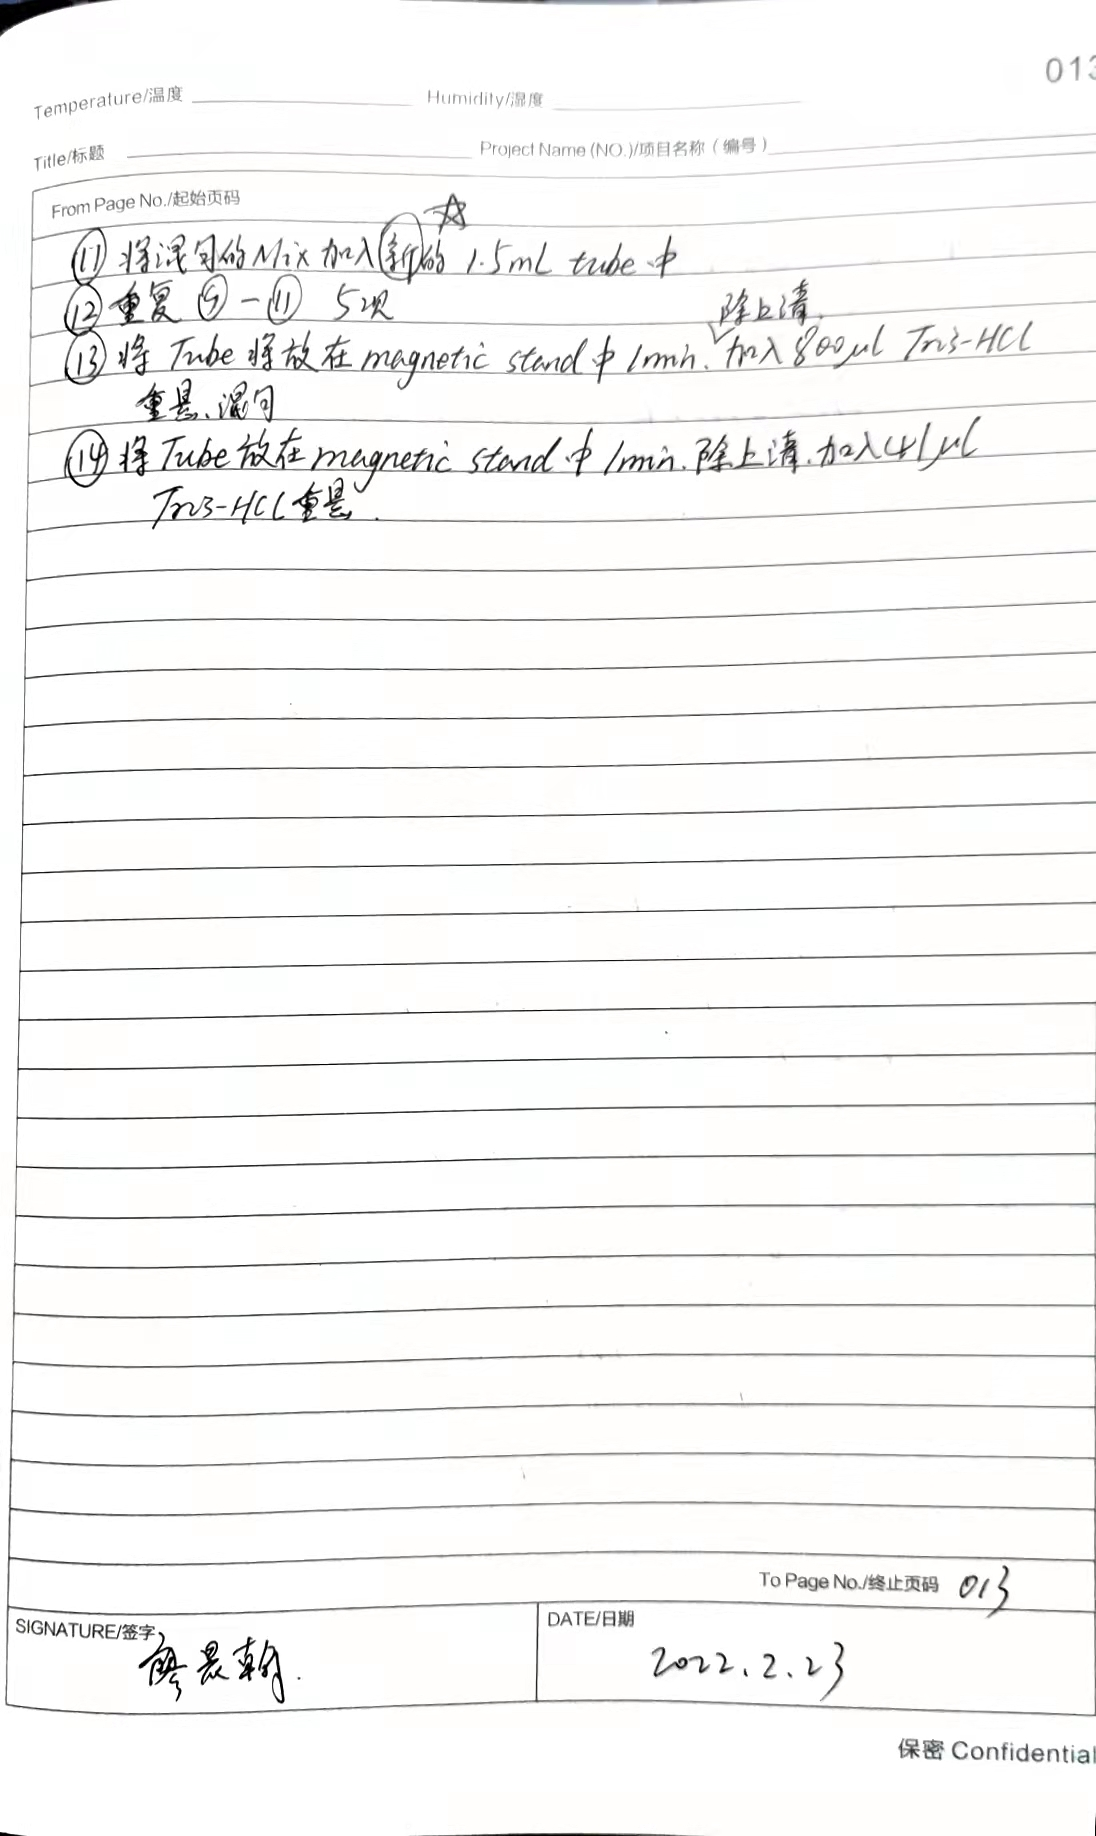 013
Temperature/温度 Humidity/湿度
Title/标题 Project Name (NO.)/项目名称（编号）
From Page No./起始页码
☆
⑪ 将混匀的Mix加入新的 1.5mL tube中
⑫ 重复 ⑨-⑪ 5次
除上清.
⑬ 将 Tube 将放在 magnetic stand 中 1min. 加入 800μl Tris-HCl
重悬、混匀
⑭ 将 Tube 放在 magnetic stand 中 1min. 除上清. 加入 41μl
Tris-HCl 重悬.
To Page No./终止页码 013
SIGNATURE/签字 DATE/日期
廖晨翰. 2022.2.23
保密 Confidential